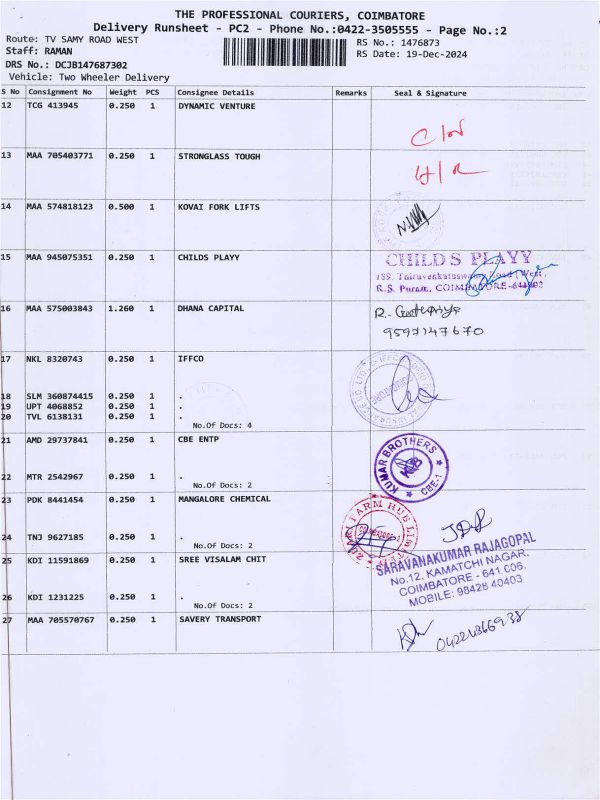 THE PROFESSIONAL COURIERS, COIMBATORE
Delivery Runsheet - PC2 - Phone No.:0422-3505555 - Page No.:2
Route: TV SAMY ROAD WEST
RS No.: 1476873
Staff: RAMAN
RS Date: 19-Dec-2024
DRS No.: DCJB147687302
Vehicle: Two Wheeler Delivery
S No Consignment No Weight PCS Consignee Details Remarks Seal & Signature
12 TCG 413945 0.250 1 DYNAMIC VENTURE
13 MAA 705403771 0.250 1 STRONGLASS TOUGH
14 MAA 574818123 0.500 1 KOVAI FORK LIFTS
15 MAA 945075351 0.250 1 CHILDS PLAYY
CHILD S PLAYY
R.S. Puram, COIMBATORE-641002
16 MAA 575003843 1.260 1 DHANA CAPITAL
9597147670
17 NKL 8320743 0.250 1 IFFCO
18 SLM 360874415 0.250 1 .
19 UPT 4068852 0.250 1 .
20 TVL 6138131 0.250 1 .
No.Of Docs: 4
21 AMD 29737841 0.250 1 CBE ENTP
KUMAR BROTHERS
CBE-1
22 MTR 2542967 0.250 1 .
No.Of Docs: 2
23 PDK 8441454 0.250 1 MANGALORE CHEMICAL
24 TNJ 9627185 0.250 1 .
No.Of Docs: 2
25 KDI 11591869 0.250 1 SREE VISALAM CHIT
SARAVANAKUMAR RAJAGOPAL
No.12, KAMATCHI NAGAR,
COIMBATORE - 641 006.
MOBILE: 98428 40403
26 KDI 1231225 0.250 1 .
No.Of Docs: 2
27 MAA 705570767 0.250 1 SAVERY TRANSPORT